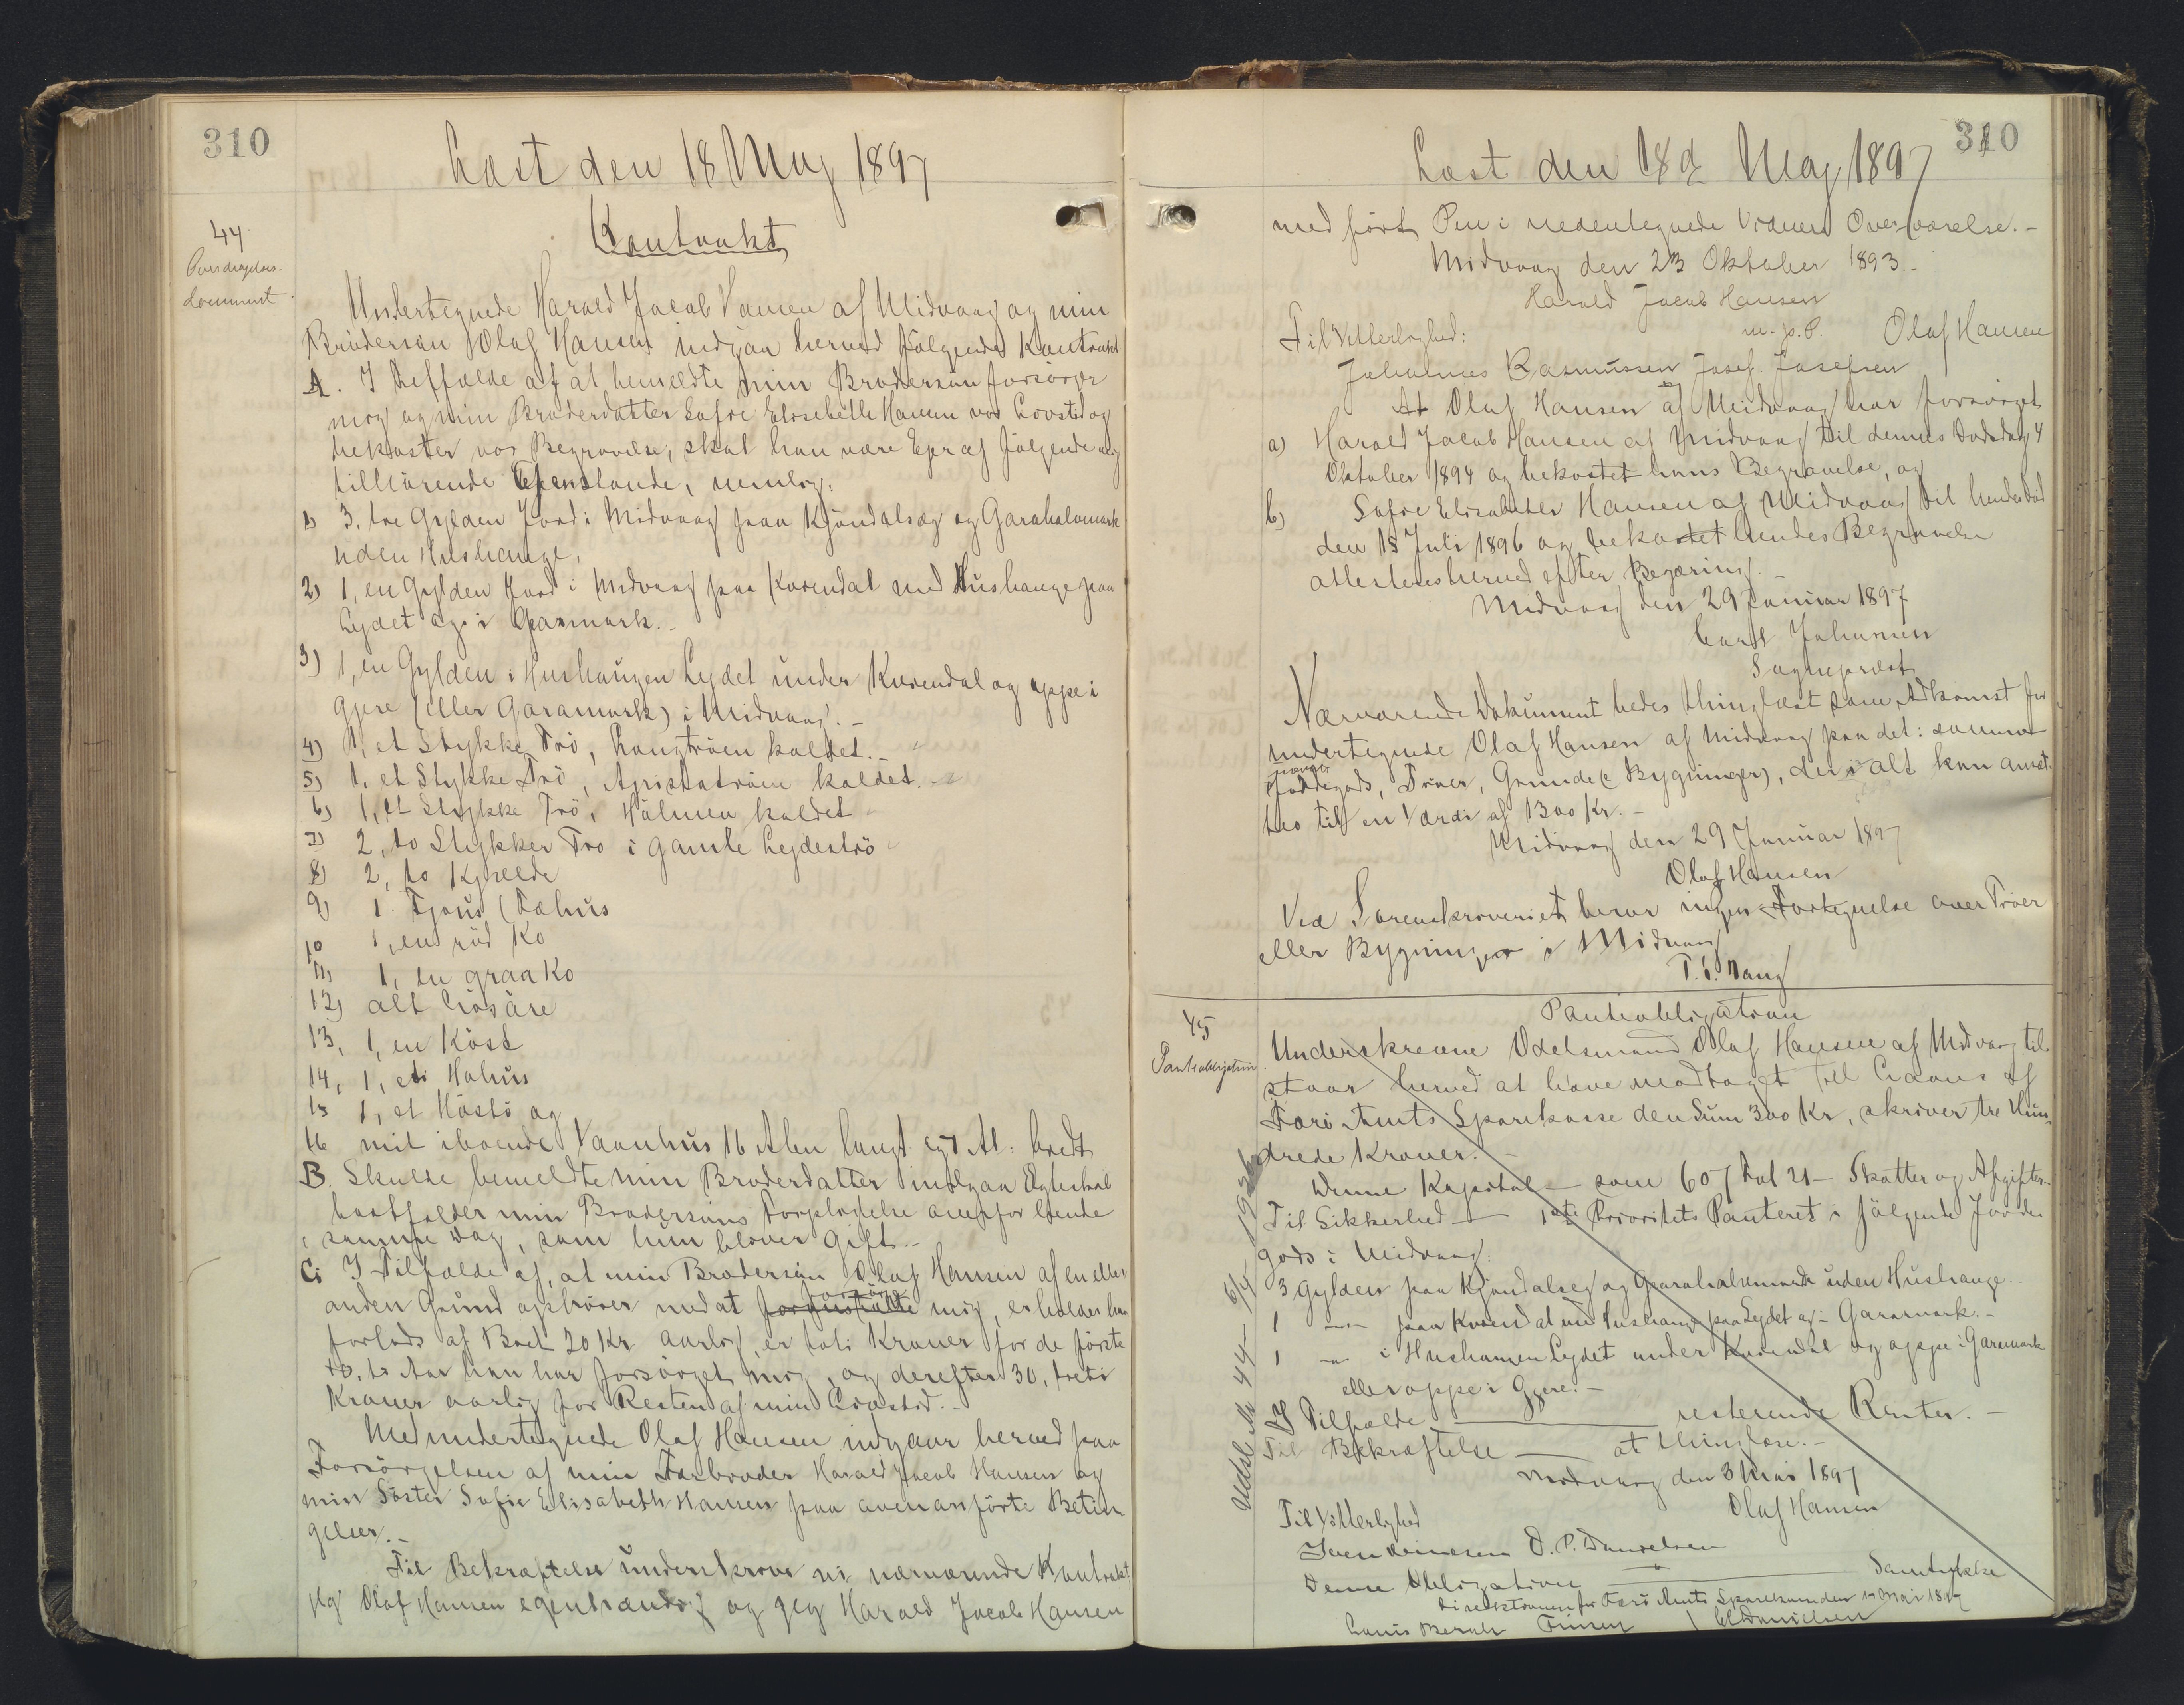 310
Læst den 18 Maj 1897
44
Overdragelses-
document
Kontrakt
Undertegnede Harald Jacob Hansen af Midvaag og min
Brodersön Olaf Hansen indgaa herved fölgende Kontrakt
A. I Tilfælde af at bemeldte min Brodersön forsörger
mig og min Broderdatter Sofie Elisabeth Hansen vor Livstid og
bekoster vor Begravelse, skal han være Ejer af fölgende mig
tilhörende Gjenstande, nemlig:
1) 3, tre Gylden Jord i Midvaag paa Kjóndalseg og Garahalvmark
uden Hushauge,
2) 1, en Gylden Jord i Midvaag paa Kvrendal med Hushauge paa
Lydet og i Garamark.-
3) 1, en Gylden i Hushaugen Lydet under Kvrendal og oppe i
Gjere (eller Garamark) i Midvaag.-
4) 1, et Stykke Trö, Langtröen kaldet.-
5) 1, et Stykke Trö, kaldet.-
6) 1, et Stykke Trö, Hólmen kaldet
7) 2, to Stykker Trö i gamle Lydeströ
8) 2, to
9) 1 Fjöus (Fæhus
10 1, en röd Ko
11) 1, en graa Ko
12) alt Lösöre
13, 1, en
14, 1, et Hohus
15 1, et og
16 mit iboende Vaanhus 16 Alen langt og 7 Al. bredt
B. Skulde bemeldte min Broderdatter indgaa Ægteskab
bortfalder min Brodersöns Forpligtelse overfor hende
samme Dag, som hun bliver gift.-
C. I Tilfælde af, at min Brodersön Olaf Hansen af en eller
anden Grund ophörer med at forsörge mig, erholder han
forlods af Boet 20 Kr aarlig, Kroner for de förste
to Aar han har forsörget mig, og derefter 30, treti
Kroner aarlig for Resten af min Livstid.-
Medundertegnede Olaf Hansen indgaar herved paa
Forsörgelsen af min Farbroder Harald Jacob Hansen og
min Söster Sofie Elisabeth Hansen paa ovenanförte Betin
gelser.-
Til Bekræftelse underskrive vi nærværende Kontrakt
jeg Olaf Hansen egenhændig og jeg Harald Jacob Hansen
310
Læst den 18d Maj 1897
med fört Pen i nedentegnede Vidners Overværelse.-
Midvaag den 23 Oktober 1893.-
Harald Jacob Hansen
m. p. P. Olaf Hansen
Til Vitterlighed:
Johannes Rasmussen Josef Josefsen
At Olaf Hansen af Midvaag har forsörget
a) Harald Jacob Hansen af Midvaag til dennes Dödsdag 4
Oktober 1894 og bekostet hans Begravelse, og
b) Sofie Elisabeth Hansen af Midvaag til hendes Död
den 18 Juli 1896 og bekostet hendes Begravelse
attesteres herved efter Begæring.-
Midvaag den 29 Januar 1897
Carl Johansen
Sognepræst
Nærværende Dokument bedes thinglæst som Adkomst for
undertegnede Olaf Hansen af Midvaag paa det: sammen
Jordegods, Tröer, Grunde (& Bygninger), der i alt kan ansæt-
tes til en Værdi af 1300 Kr.-
Midvaag den 29 Januar 1897
Olaf Hansen
Ved Sorenskriveriet beror ingen Fortegnelse over Tröer
eller Bygninger i Midvaag
45
Pantobligation
Pantobligation
Underskrevne Odelsmand Olaf Hansen af Midvaag til
staar herved at have modtaget til Laans af
Færö Amts Sparekasse den Sum 300 Kr, skriver tre Hun-
drede Kroner.-
Denne Kapital – som 607 Fol 21 – Skatter og Afgifter.-
Til Sikkerhed – 1ste Prioritets Panteret i fölgende Jorde-
gods i Midvaag:
3 Gylden paa Kjóndalseg og Garahalvmark uden Hushauge.-
1 – paa Kvrendal med Hushauge paa Lydet og i Garamark.-
1 – i Hushaugen Lydet under Kvrendal og oppe i Garamark
eller oppe i Gjere.-
I Tilfælde – resterende Renter.-
Til Bekræftelse – at thinglæse.-
Midvaag den 3 Mai 1897
Olaf Hansen
Til Vitterlighed
D. P. Danielsen
Denne Obligation – Samtykke
Direktionen for Færö Amts Sparekasse den Mai 1897
Louis Bergh Finsen